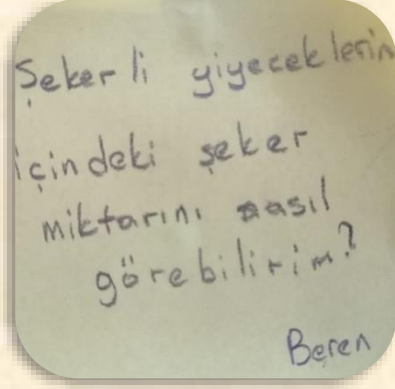 Şekerli yiyeceklerin
içindeki şeker
miktarını nasıl
görebilirim?
Beren